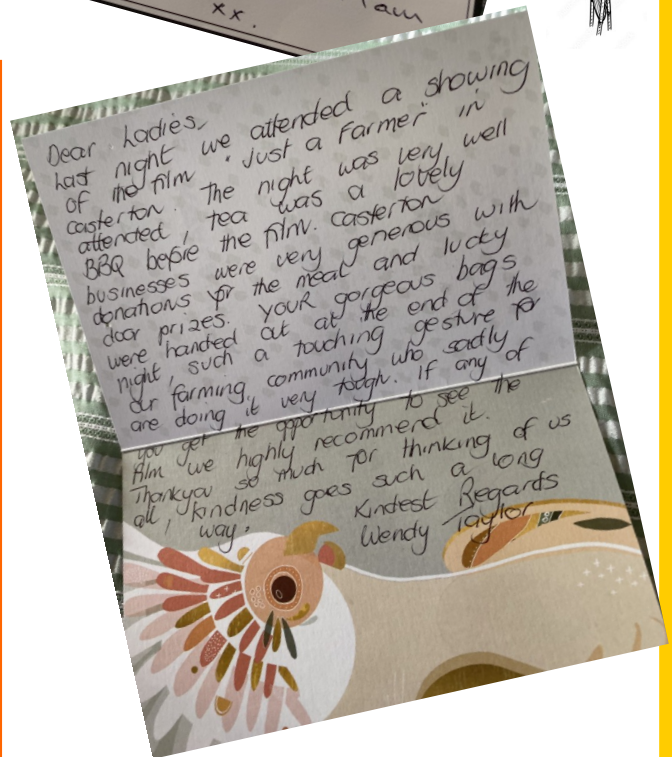 xx.
iam
Dear Ladies,
Last night we attended a showing
of the film "Just a Farmer" in
Casterton. The night was very well
attended, tea was a lovely
BBQ before the film. Casterton
businesses were very generous with
donations for the meat and lucky
door prizes. YOUR gorgeous bags
were handed out at the end of the
night, such a touching gesture for
our farming community who sadly
are doing it very tough. If any of
you get the opportunity to see the
film we highly recommend it.
Thankyou so much for thinking of us
all, kindness goes such a long
way.
Kindest Regards
Wendy Taylor